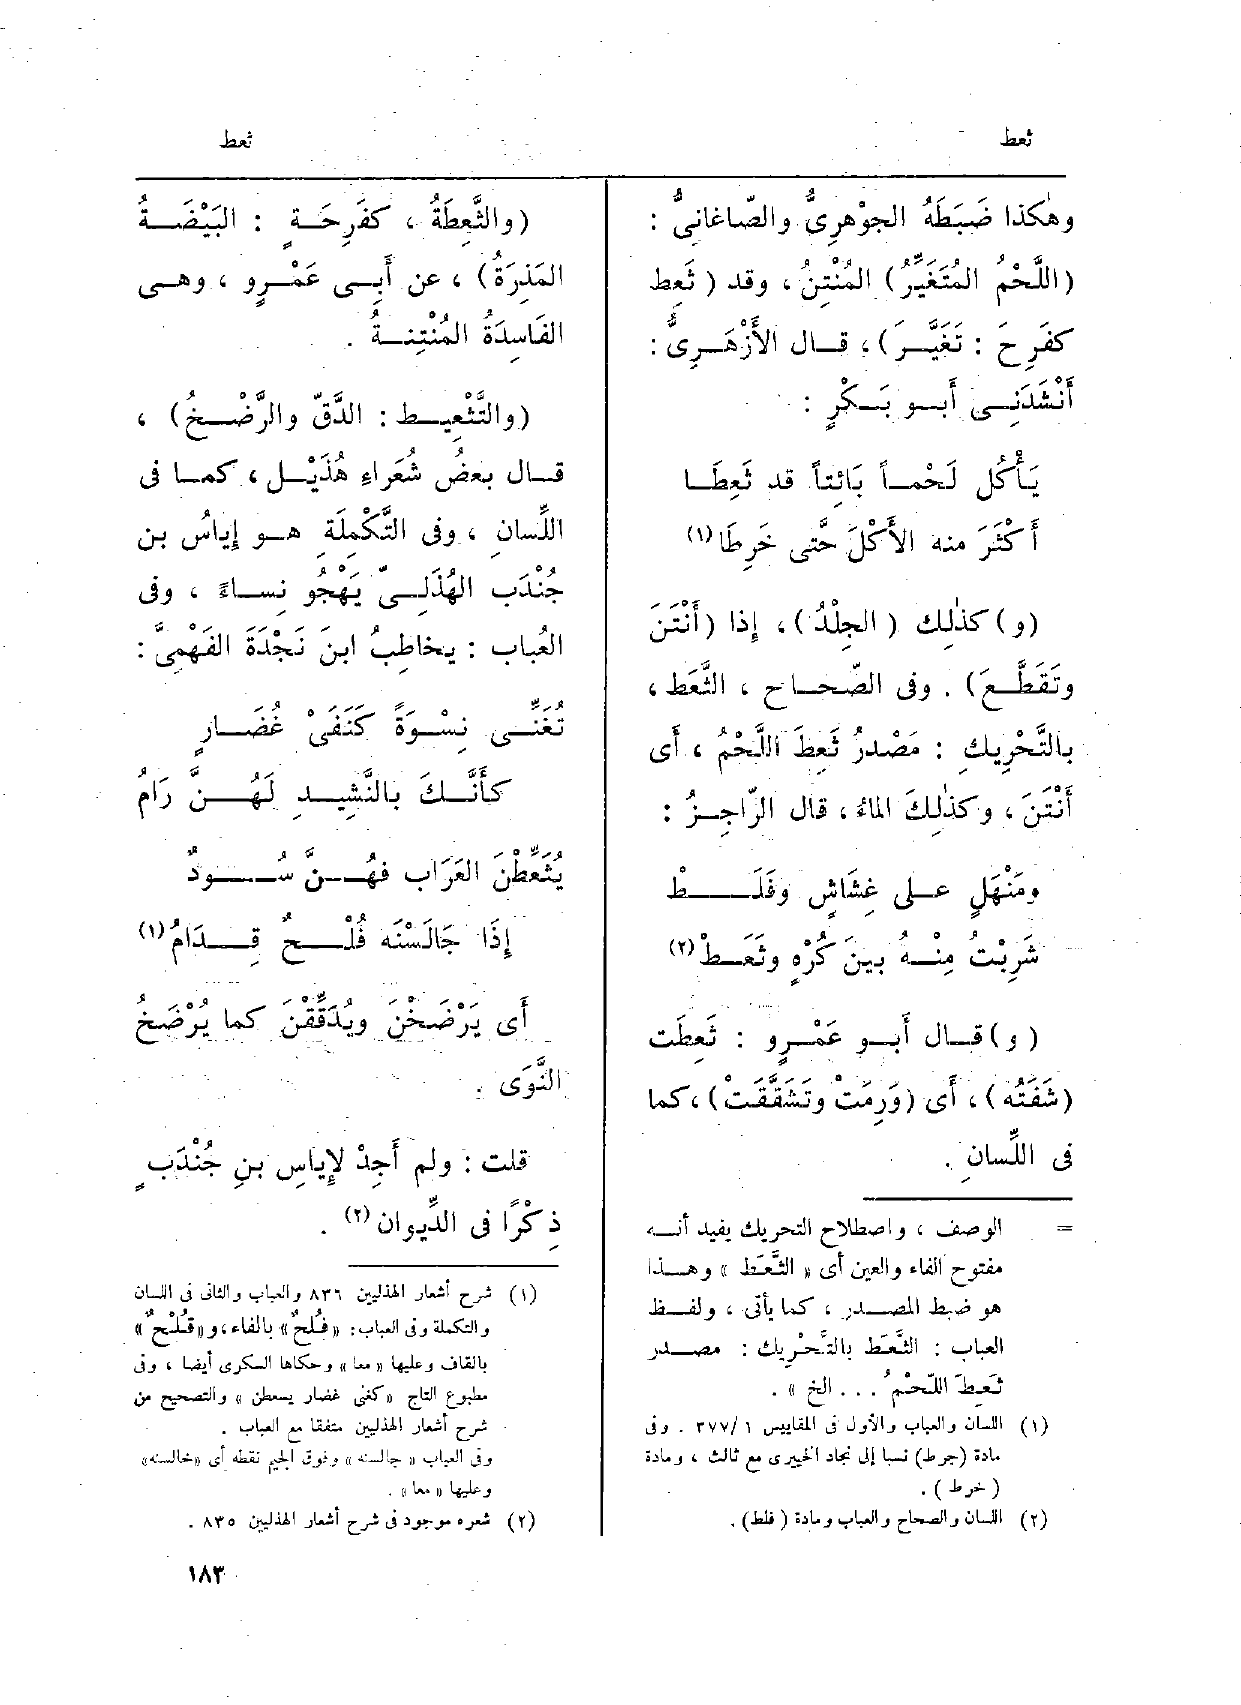 ثعط
ثعط
وهٰكذا ضَبَطَهُ الجوْهرِىُّ والصّاغانِىُّ :
(اللَّحْمُ المُتَغَيِّرُ) المُنْتِنُ ، وقد ( ثَعِط
كفَرِحَ : تَغَيَّـرَ) ، قـال الأَزْهَـرِىُّ :
أَنْشَدَنِـى أَبـو بَـكْرٍ :
يَـأْكُل لَحْمـاً بَائِتاً قد ثَعِطَـا
أَكْثَرَ منه الأَكْلَ حَتَّى خَرِطَا (١)
(و) كذٰلِك ( الجِلْدُ) ، إِذا (أَنْتَنَ
وتَقَطَّـعَ) . وفى الصّحـاح ، الثَّعَط ،
بالتَّحْرِيكِ : مَصْدرُ ثَعِطَ اللَّحْمُ ، أَى
أَنْتَنَ ، وكذٰلِكَ الماءُ ، قال الرّاجِـزُ :
ومَنْهَلٍ عـلى غِشَاشٍ وفَلَـــطْ
شَرِبْتُ مِنْـهُ بينَ كُرْهٍ وثَعَـطْ (٢)
( و) قـال أَبـو عَمْـرٍو : ثَعِطَت
(شَفَتُه ) ، أَى (وَرِمَتْ وتَشَقَّقَتْ) ، كما
فى اللِّسانِ .
= الوصف ، واصطلاح التحريك يفيد أنـه
مفتوح الفاء والعين أى « الثَّعَط » وهـذا
هو ضبط المصـدر ، كما يأتى ، ولفـظ
العباب : الثَّعَطَ بالتَّحْرِيك : مصـدر
ثَعِطَ اللّحْمُ ... الخ » .
(١) اللسان والعباب والأول فى المقاييس ٣٧٧/١ . وفى
مادة (جرط) نسبا إلى نجاد الخيبرى مع ثالث ، ومادة
( خرط ) .
(٢) اللسان والصحاح والعباب ومادة ( فلط) .
(والثَّعِطَةُ ، كفَرِحَـةٍ : البَيْضَـةُ
المَذِرَةُ) ، عن أَبِـى عَمْـرٍو ، وهـى
الفَاسِدَةُ المُنْتِنـةُ .
(والتَّثْعِيـط : الدَّقّ والرَّضْـخُ) ،
قـال بعضُ شُعَراءِ هُذَيْـل ، كمـا فى
اللِّسانِ ، وفى التَّكْمِلَةِ هـو إِياسُ بن
جُنْدَب الهُذَلِـىّ يَهْجُو نِسـاءً ، وفى
العُباب : يخاطِبُ ابنَ نَجْدَةَ الفَهْمِىَّ :
تُغَنِّـى نِسْـوَةً كَنَفَىْ غُضَـارٍ
كأَنَّـكَ بالنَّشِيـدِ لَهُـنَّ رَامُ
يُثَعِّطْنَ العَرَابَ فهُـنَّ سُـــودٌ
إِذَا جَالَسْنَه فُلْـحٌ قِـدَامُ (١)
أَى يَرْضَخْنَ ويُدَقِّقْنَ كما يُرْضَخُ
النَّوَى .
قلت : ولم أَجِدْ لإِياسِ بنِ جُنْدَبٍ
ذِكْرًا فى الدِّيوان (٢) .
(١) شرح أشعار الهذليين ٨٣٦ والعباب والثانى فى اللسان
والتكملة وفى العباب : «فُلْحٌ» بالفاء ، و«قُلْحٌ»
بالقاف وعليها « معا » وحكاها السكرى أيضا ، وفى
مطبوع التاج «كغى غضار يسعطن » والتصحيح من
شرح أشعار الهذليين متفقا مع العباب .
وفى العباب « جالسنه » وفوق الجيم نقطه أى «خالسنه»
وعليها « معا » .
(٢) شعره موجود فى شرح أشعار الهذليين ٨٣٥ .
١٨٣